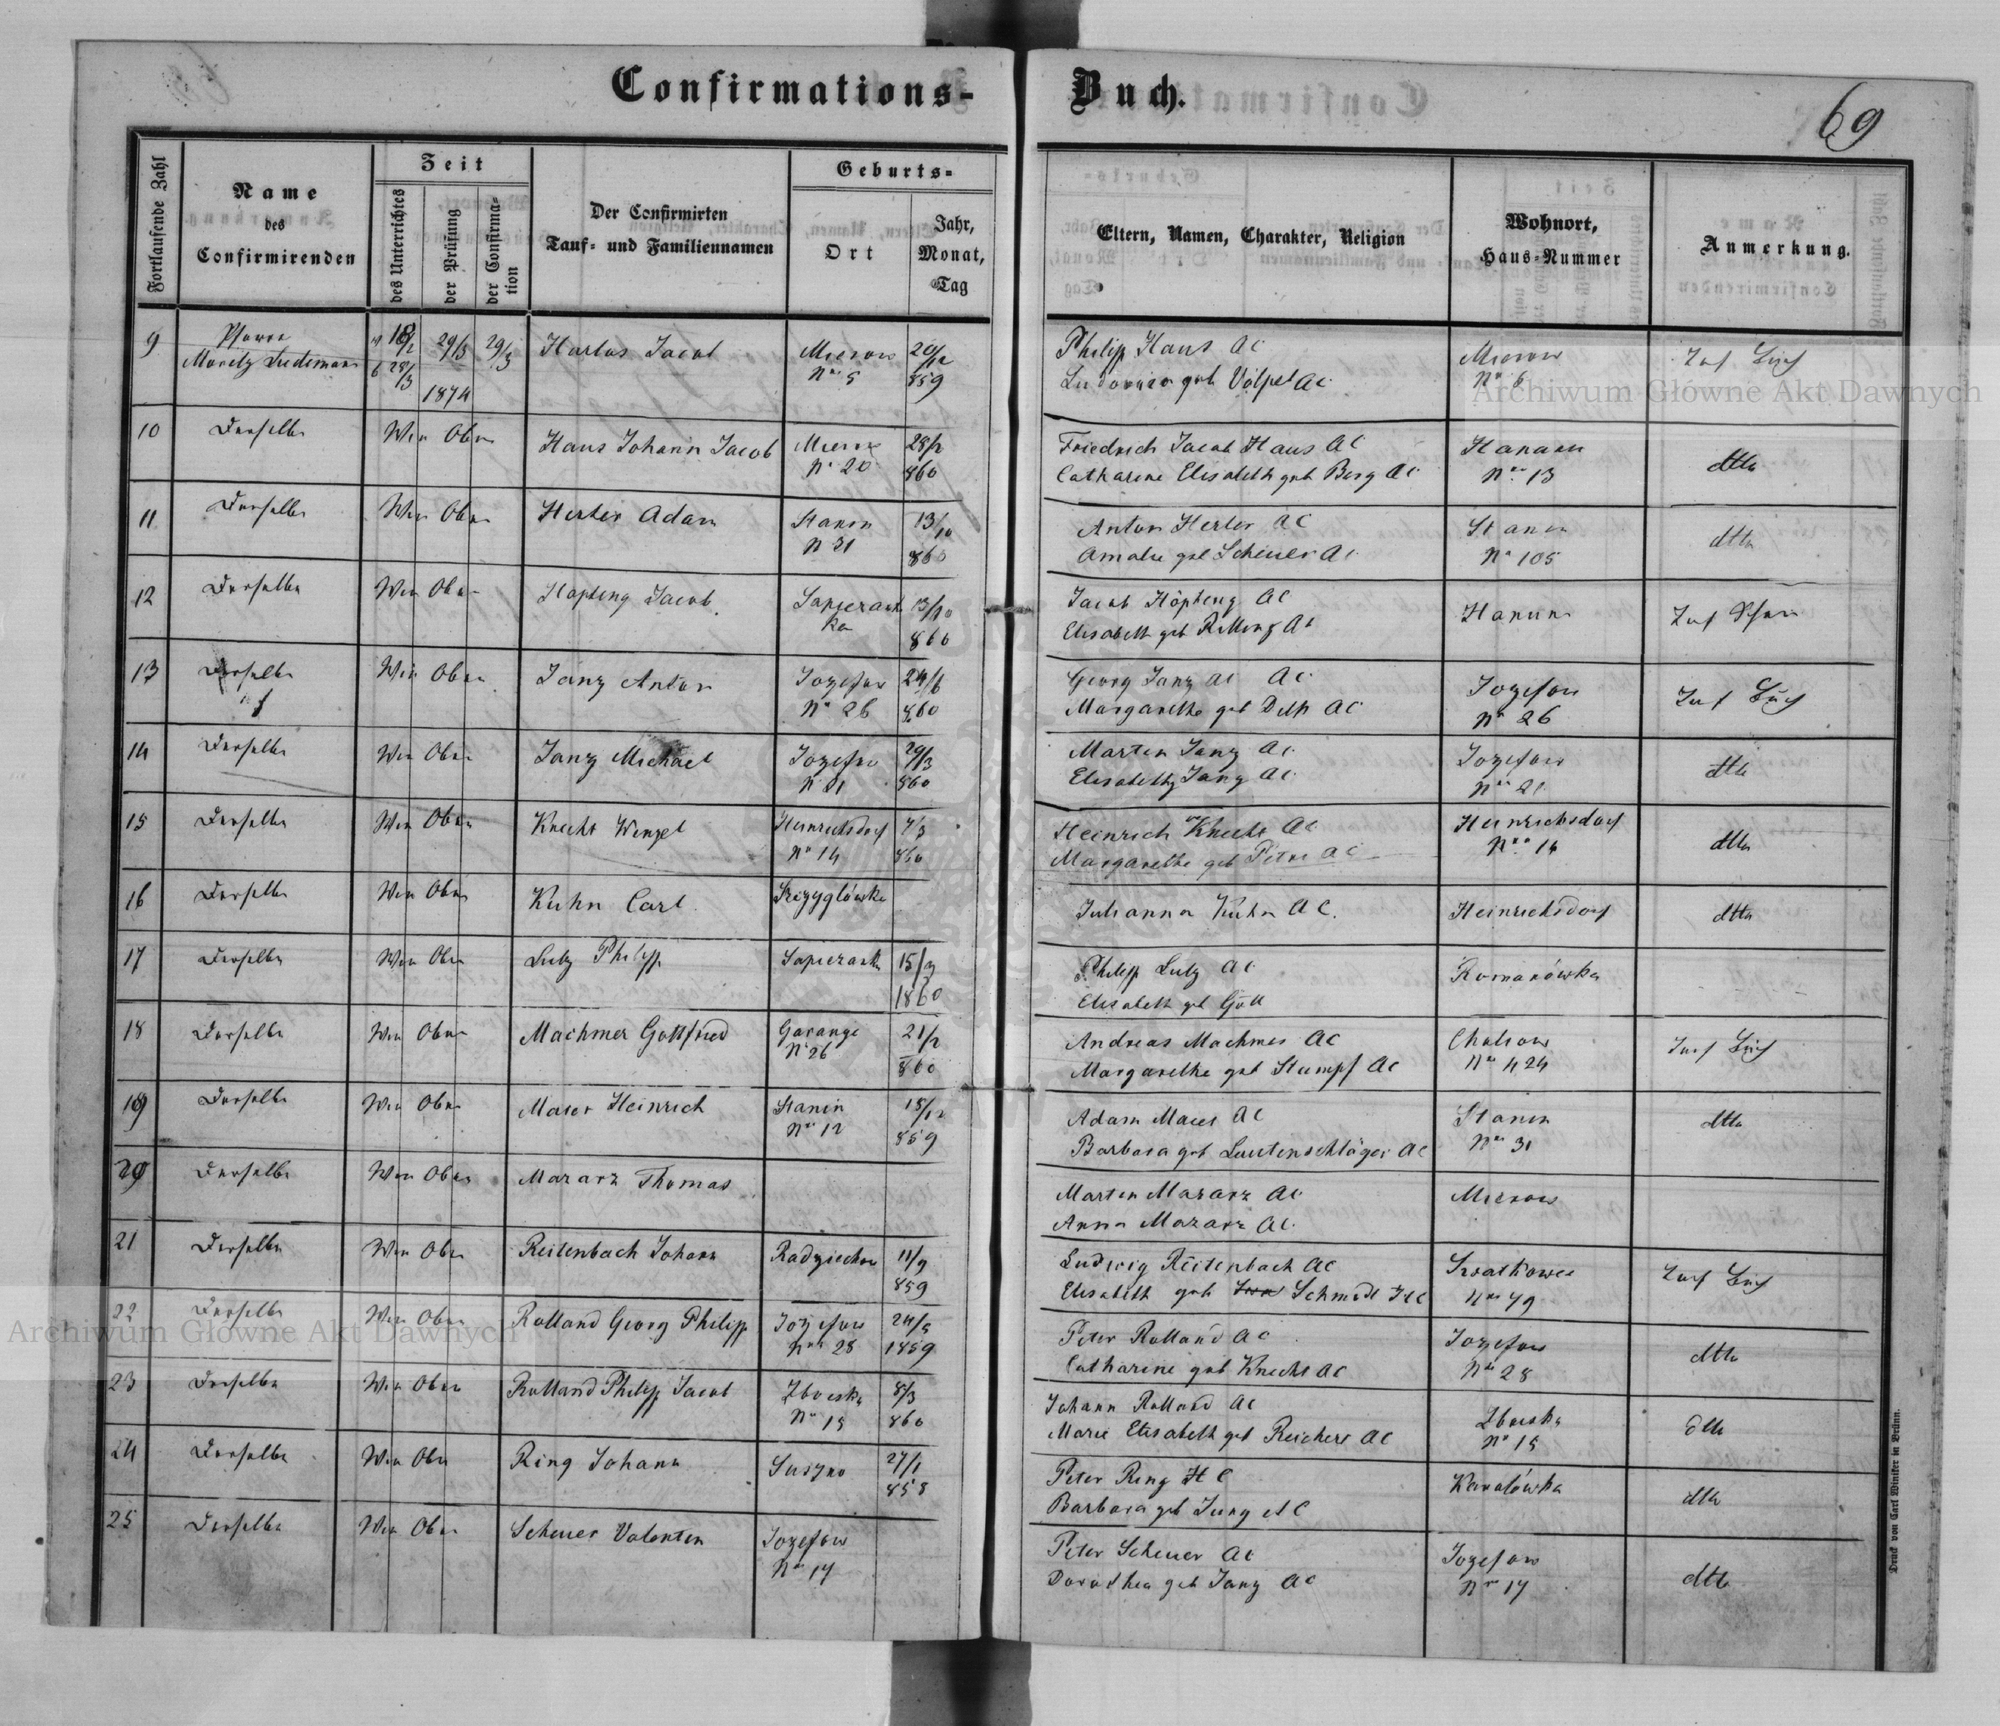 Confirmations-Buch.
69
Fortlaufende Zahl
Name des Confirmirenden
Zeit
des Unterrichtes
der Prüfung
der Confirmation
Der Confirmirten Tauf- und Familiennamen
Geburts-
Ort
Jahr, Monat, Tag
Eltern, Namen, Charakter, Religion
Wohnort, Haus-Nummer
Anmerkung.
9 29/3 29/3 Jacob Mierow 20/12 Philip Haus AC Mierow
28/3 1874 No 5 859 geb Völpel AC No 6
10 Derselbe Wie Oben Haus Johann Jacob Mierow 28/2 Friedrich Jacob Haus AC Hanain dtto
No 20 860 Catharine Elisabeth geb Berg AC No 13
11 Derselbe Wie Oben Herter Adam Stanin 13/10 Anton Herter AC Stanin dtto
No 31 860 Amalie geb Scheuer AC No 105
12 Derselbe Wie Oben Jacob Sapiezanka 13/10 Jacob AC Hanunin
860 Elisabeth geb AC
13 Derselbe Wie Oben Janz Anton Jozefow 24/6 Georg Janz AC AC Jozefow
No 26 860 Margarethe geb AC No 26
14 Derselbe Wie Oben Janz Michael Jozefow 29/3 Martin Janz AC Jozefow dtto
No 21 860 Elisabeth Janz AC No 21
15 Derselbe Wie Oben Knecht Wenzel Heinrichsdorf 4/3 Heinrich Knecht AC Heinrichsdorf dtto
No 14 860 Margarethe geb Peter AC No 14
16 Derselbe Wie Oben Kuhn Carl Julianna Kuhn AC. Heinrichsdorf dtto
17 Derselbe Wie Oben Lutz Philipp Sapiezanka 15/9 Philipp Lutz AC Romanówka
1860 Elisabeth geb Göll
18 Derselbe Wie Oben Machmer Gottfried 21/2 Andreas Machmer AC
No 26 860 Margarethe geb Stumpf AC No 424
19 Derselbe Wie Oben Maier Heinrich Stanin 18/12 Adam Maier AC Stanin dtto
No 12 859 Barbara geb Lautenschläger AC No 31
20 Derselbe Wie Oben Mararz Thomas Martin Mararz AC Mierow
Anna Mararz AC.
21 Derselbe Wie Oben Reitenbach Johann Radziechow 11/9 Ludwig Reitenbach AC
859 Elisabeth geb Schmidt HC No 79
22 Derselbe Wie Oben Rolland Georg Philipp Jozefow 24/5 Peter Rolland AC Jozefow dtto
No 28 1859 Catharine geb Knecht AC No 28
23 Derselbe Wie Oben Rolland Philipp Jacob Zboiska 8/3 Johann Rolland AC Zboiska dtto
No 15 860 Marie Elisabeth geb Reichert AC No 15
24 Derselbe Wie Oben Ring Johann Suszno 27/1 Peter Ring HC Karolówka dtto
858 Barbara geb Jung AC
25 Derselbe Wie Oben Scheuer Valentin Jozefow Peter Scheuer AC Jozefow dtto
No 17 Dorothea geb Janz AC No 17
Druck von Carl Winiker in Brünn.
Archiwum Główne Akt Dawnych
Archiwum Główne Akt Dawnych